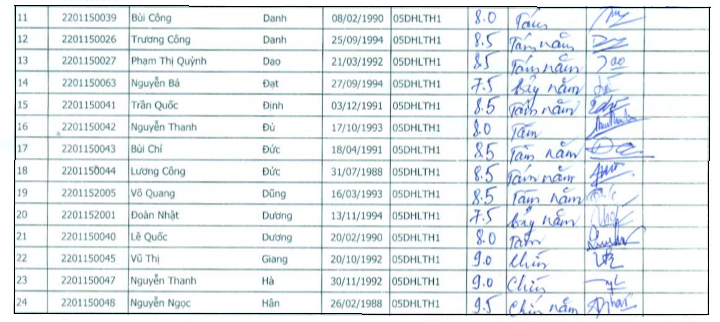 11 2201150039 Bùi Công Danh 08/02/1990 05DHLTH1 8.0 Tám
12 2201150026 Trương Công Danh 25/09/1994 05DHLTH1 8.5 Tám năm
13 2201150027 Phạm Thị Quỳnh Dao 21/03/1992 05DHLTH1 8.5 Tám năm Dao
14 2201150063 Nguyễn Bá Đạt 27/09/1994 05DHLTH1 7.5 bảy năm
15 2201150041 Trần Quốc Định 03/12/1991 05DHLTH1 8.5 Tám năm
16 2201150042 Nguyễn Thanh Đủ 17/10/1993 05DHLTH1 8.0 Tám
17 2201150043 Bùi Chí Đức 18/04/1991 05DHLTH1 8.5 Tám năm
18 2201150044 Lương Công Đức 31/07/1988 05DHLTH1 8.5 Tám năm
19 2201152005 Võ Quang Dũng 16/03/1993 05DHLTH1 8.5 Tám năm
20 220112001 Đoàn Nhật Dương 13/11/1994 05DHLTH1 7.5 bảy năm
21 2201150040 Lê Quốc Dương 20/02/1990 05DHLTH1 8.0 Tám
22 2201150045 Vũ Thị Giang 20/10/1992 05DHLTH1 9.0 Chín
23 2201150047 Nguyễn Thanh Hà 30/11/1992 05DHLTH1 9.0 Chín
24 2201150048 Nguyễn Ngọc Hân 26/02/1988 05DHLTH1 9.5 Chín năm